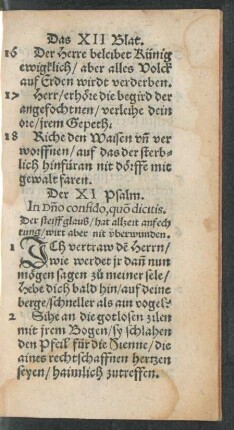 Das XII Blat.
16 Der Herre beleibet Künig
ewigklich / aber alles Volck
auf Erden wirdt verderben.
17 Herr / erhöre die begird der
angefochtnen / verleihe dein
ore / jrem Gepeth.
18 Riche den Waisen vñ ver
worffnen / auf das der sterb-
lich hinfüran nit dörffe mit
gewalt faren.
Der XI Psalm.
In Dño confido, quõ dicitis.
Der steiff glaub / hat allzeit anfech
tung / wirt aber nit vberwunden.
1 ICh vertraw dẽ Herrn /
wie werdet jr dañ nun
mögen sagen zů meiner sele /
hebe dich bald hin / auf deine
berge / schneller als ain vogel?
2 Sihe an die gotlosen zilen
mit jrem Bogen / sy schlahen
den Pfeil für die Senne / die
aines rechtschaffnen hertzen
seyen / haimlich zutreffen.